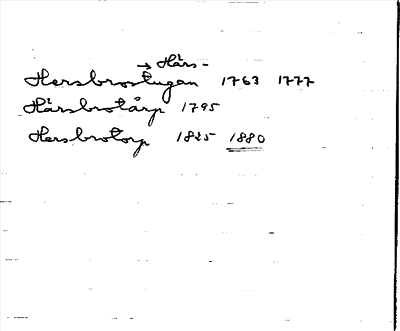 → Hårs-
Hersbrostugan 1763 1777
Hårsbrotårp 1795
Hersbrotorp 1825 1880